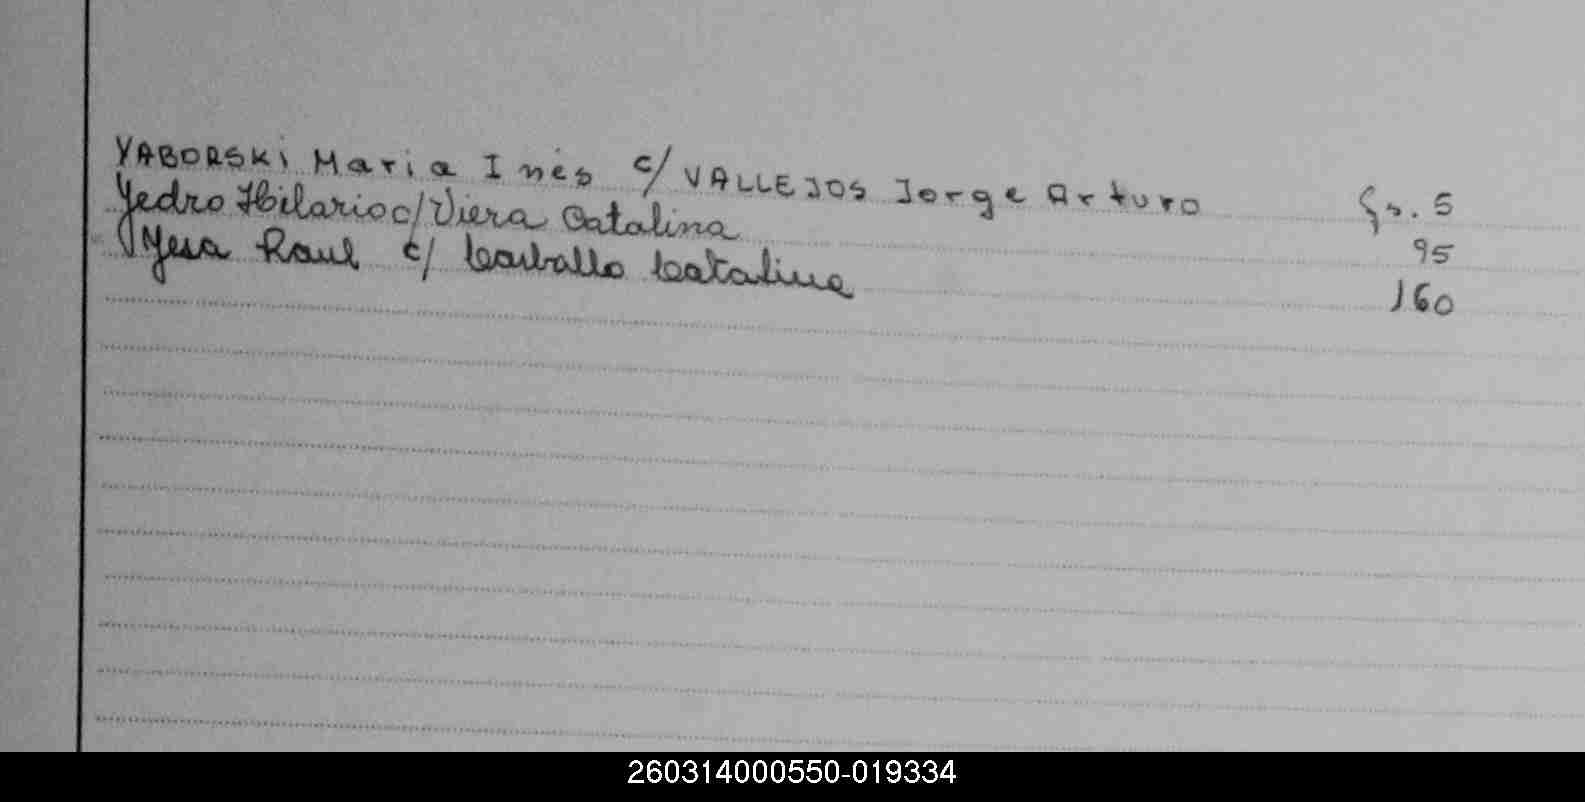 YABORSKi Maria Inés c/ VALLEJOS Jorge Arturo Fs. 5
Yedro Hilario c/ Viera Catalina 95
Yesa Raul c/ Carballo Catalina 160
260314000550-019334